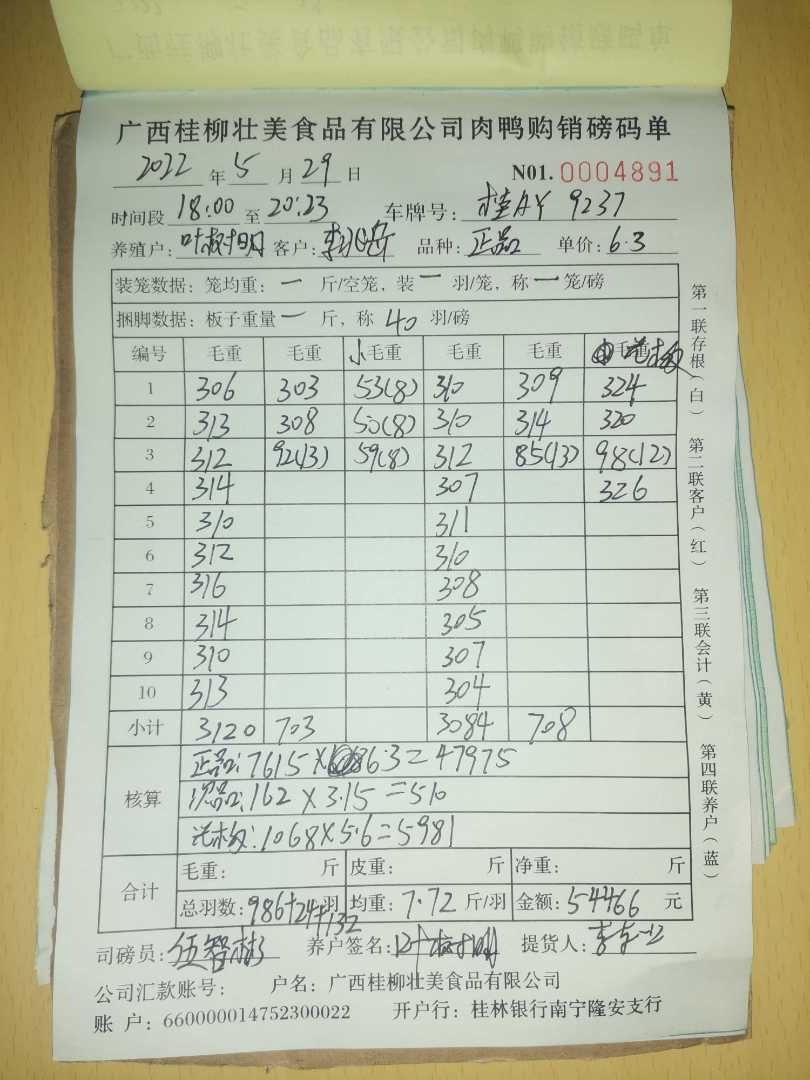 广西桂柳壮美食品有限公司肉鸭购销磅码单
2022 年 5 月 29 日 N01. 0004891
时间段 18:00 至 20:23 车牌号: 桂AY 9237
养殖户: 叶树明 客户: 品种: 正品 单价: 6.3
装笼数据: 笼均重: 一 斤/空笼, 装 一 羽/笼, 称 一 笼/磅
捆脚数据: 板子重量 一 斤, 称 40 羽/磅
编号 毛重 毛重 小毛重 毛重 毛重 毛重
1 306 303 53(8) 310 309 324
2 313 308 50(8) 310 314 320
3 312 92(13) 59(8) 312 85(13) 98(12)
4 314 307 326
5 310 311
6 312 310
7 316 308
8 314 305
9 310 307
10 313 304
小计 3120 703 3084 708
核算
正品: 7615×6.3=47975
次品: 162×3.15=510
: 1068×5.6=5981
合计
毛重: 斤 皮重: 斤 净重: 斤
总羽数: 986+24+132 羽 均重: 7.72 斤/羽 金额: 54466 元
司磅员: 伍智彬 养户签名: 叶树明 提货人:
公司汇款账号: 户名: 广西桂柳壮美食品有限公司
账 户: 660000014752300022 开户行: 桂林银行南宁隆安支行
第一联存根(白) 第二联客户(红) 第三联会计(黄) 第四联养户(蓝)